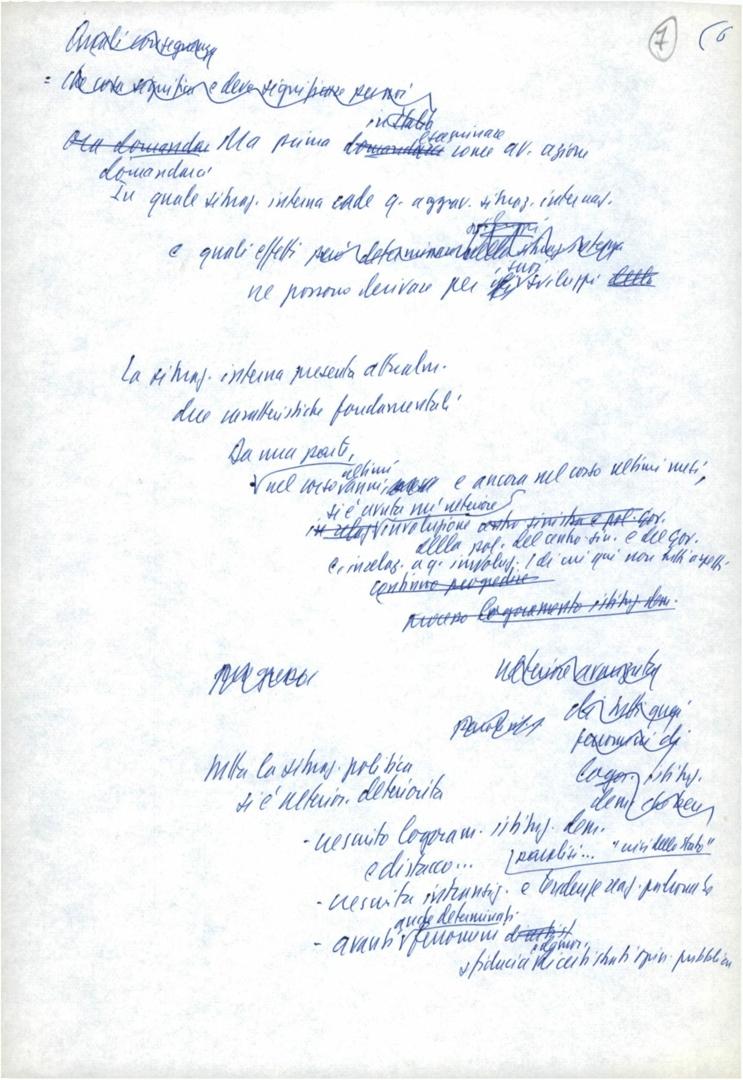 7 6
Quali conseguenze
= Che cosa significa e deve significare per noi
in Italia
Ora domandar Ma prima domandarci esaminare come av. azione
domandarci
In quale situaz. interna cade q. aggrav. situaz. internaz.
e quali effetti può determinare sulla situaz. interna
ne possono derivare per i suoi sviluppi della
La situaz. interna presenta attualm.
due caratteristiche fondamentali
Da una parte,
nel corso ultimi anni, e ancora nel corso ultimi mesi,
si è avuta un' ulteriore
in relaz involuzione centro sinistra e pol. gov.
della pol. del centro-sin. e del gov.
e in relaz. a q. involuz. (di cui qui non tutti aspetti
continuo progredire
processo logoramento istituz. dem.
progressi ulteriore avanzata
paralisi di tutti quei
fenomeni di
logor. istituz.
dem.
tutta la situaz. politica
si è ulterior. deteriorata
- cresciuto logoram. istituz. dem.
e distacco... paralisi... "crisi dello Stato"
- cresciuta intransig. e tendenze reaz. padronato
anche determinati
- avanti fenomeni
sfiducia di certi strati opin. pubblica